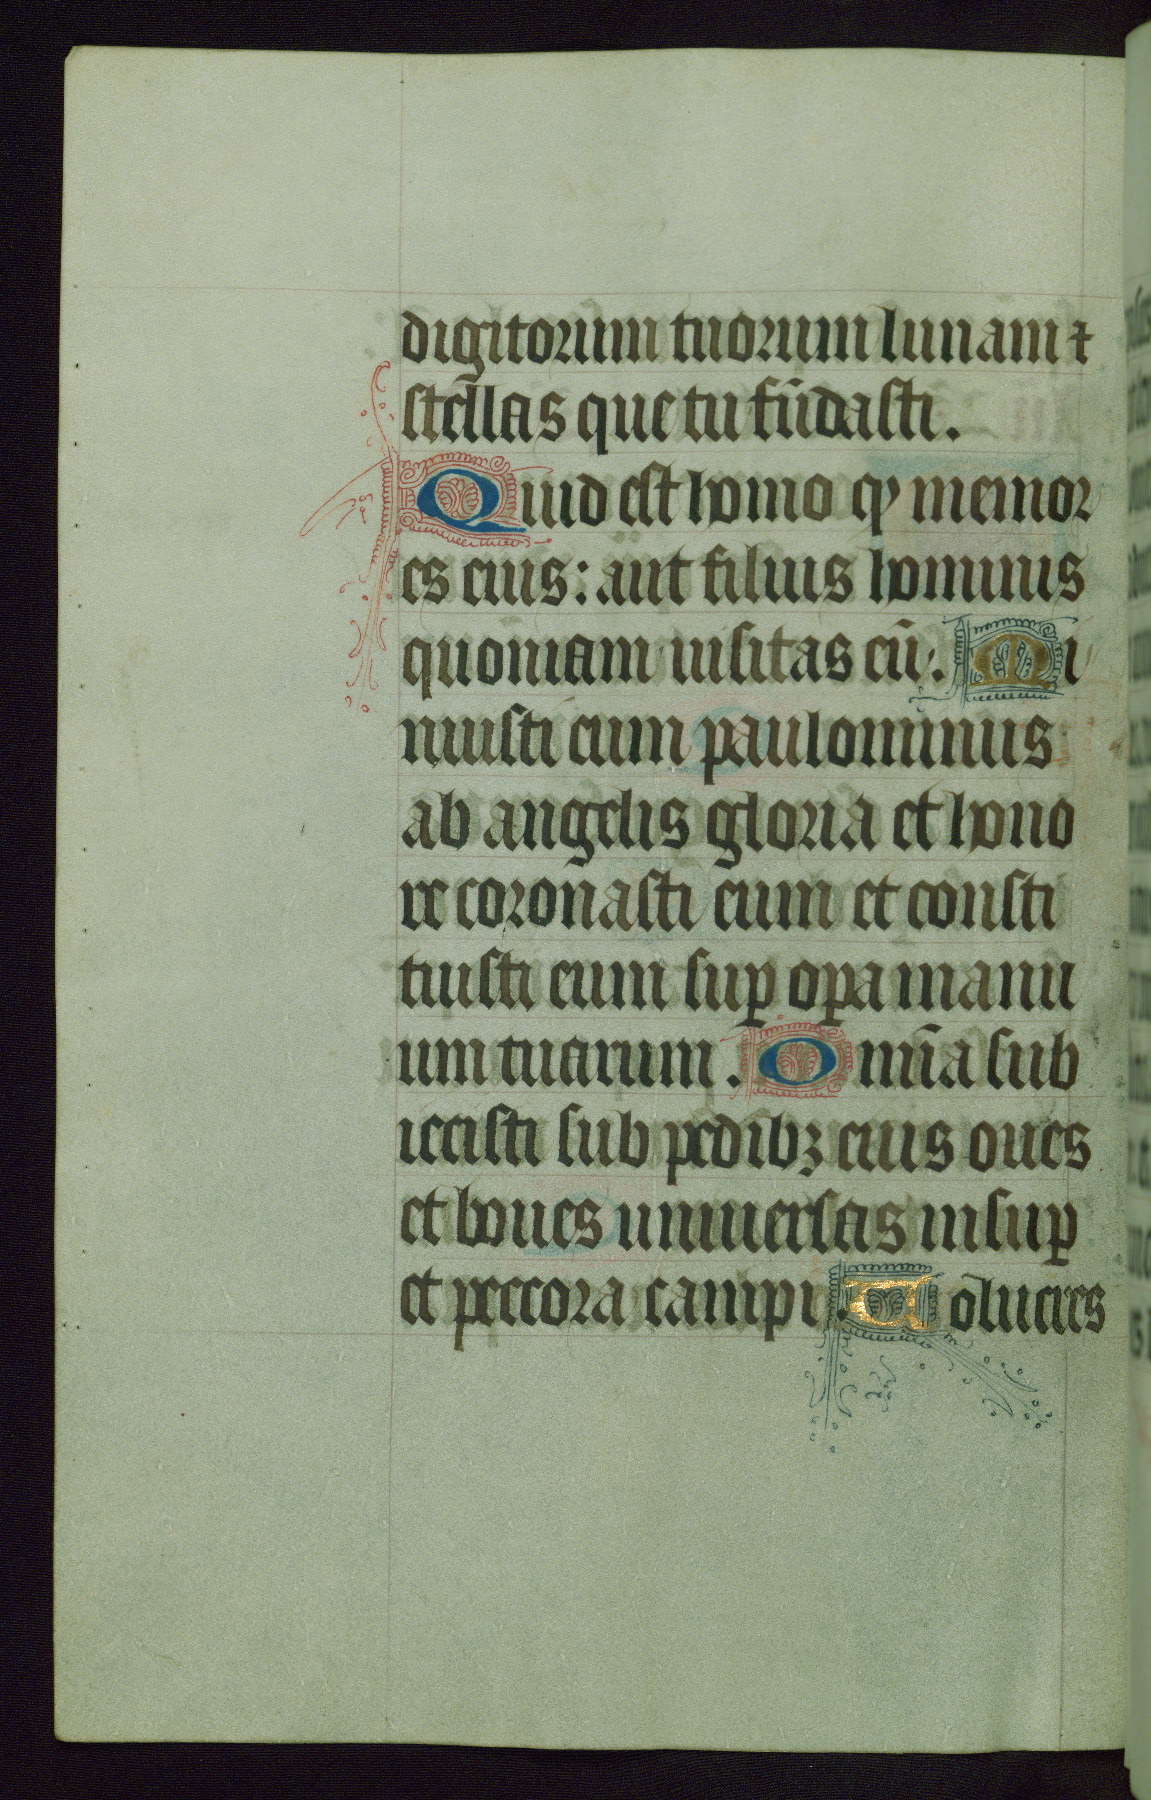 digitorum tuorum lunam ⁊
stellas que tu fūdasti.
Quid est homo qꝫ memor
es eius: aut filius hominis
quoniam uisitas eū. Mi
nuisti eum paulominus
ab angelis gloria et hono
re coronasti eum et consti
tuisti eum suꝑ oꝑa manu
um tuarum. Omīa sub
iecisti sub pedibꝫ eius oues
et boues uniuersas insuꝑ
et peccora campi. Uolucres